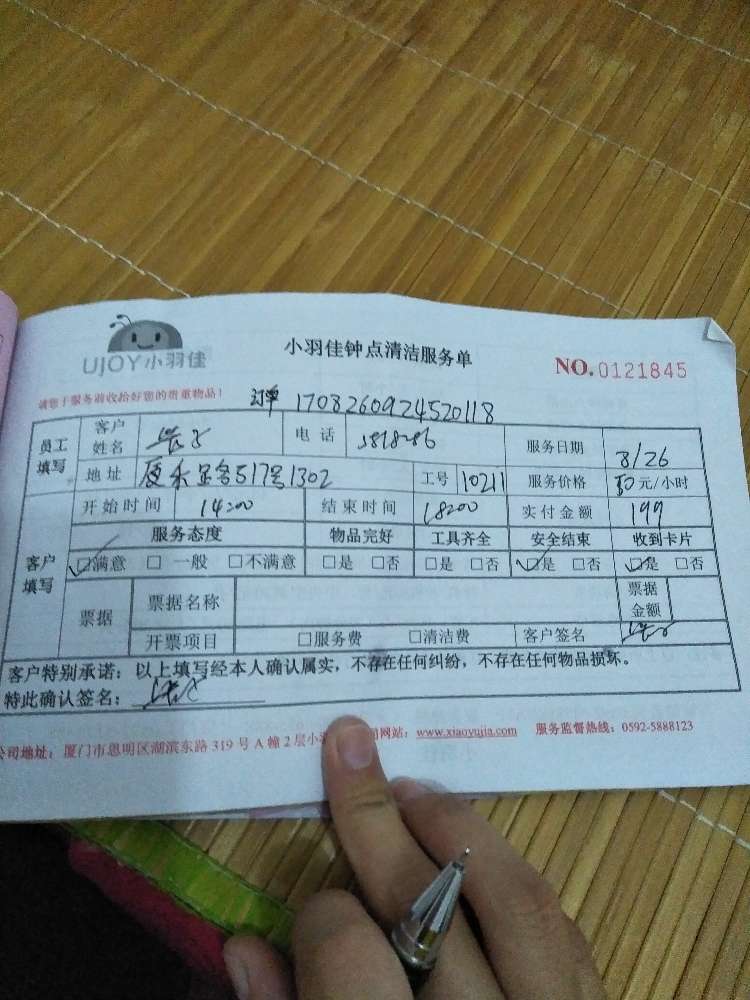 UJOY小羽佳
小羽佳钟点清洁服务单
NO.0121845
请您于服务前收拾好您的贵重物品！
订单 1708260924520118
员工填写 客户姓名 电话 服务日期 8/26
地址 517号1302 工号 10211 服务价格 50元/小时
开始时间 14:00 结束时间 18:00 实付金额 199
客户填写 服务态度 物品完好 工具齐全 安全结束 收到卡片
☑满意 □一般 □不满意 □是 □否 □是 □否 ☑是 □否 ☑是 □否
票据 票据名称 票据金额
开票项目 □服务费 □清洁费 客户签名
客户特别承诺：以上填写经本人确认属实，不存在任何纠纷，不存在任何物品损坏。
特此确认签名：
公司地址：厦门市思明区湖滨东路 319 号 A 幢 2 层小 网站：www.xiaoyujia.com 服务监督热线：0592-5888123